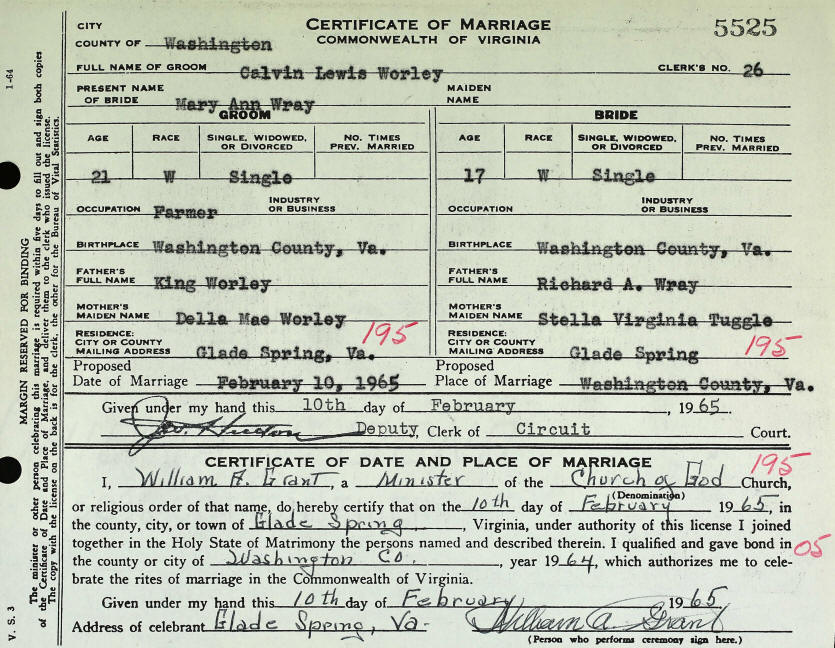 CITY
CERTIFICATE OF MARRIAGE
5525
COUNTY OF Washington
COMMONWEALTH OF VIRGINIA
FULL NAME OF GROOM Calvin Lewis Worley CLERK'S NO. 26
PRESENT NAME OF BRIDE Mary Ann Wray MAIDEN NAME
GROOM BRIDE
AGE RACE SINGLE, WIDOWED, OR DIVORCED NO. TIMES PREV. MARRIED AGE RACE SINGLE, WIDOWED, OR DIVORCED NO. TIMES PREV. MARRIED
21 W Single 17 W Single
OCCUPATION Farmer INDUSTRY OR BUSINESS OCCUPATION INDUSTRY OR BUSINESS
BIRTHPLACE Washington County, Va. BIRTHPLACE Washington County, Va.
FATHER'S FULL NAME King Worley FATHER'S FULL NAME Richard A. Wray
MOTHER'S MAIDEN NAME Della Mae Worley MOTHER'S MAIDEN NAME Stella Virginia Tuggle
RESIDENCE: CITY OR COUNTY MAILING ADDRESS Glade Spring, Va. 195 RESIDENCE: CITY OR COUNTY MAILING ADDRESS Glade Spring 195
Proposed Date of Marriage February 10, 1965 Proposed Place of Marriage Washington County, Va.
Given under my hand this 10th day of February, 1965.
Deputy, Clerk of Circuit Court.
CERTIFICATE OF DATE AND PLACE OF MARRIAGE 195
I, William A. Grant, a Minister of the Church of God Church,
(Denomination)
or religious order of that name, do hereby certify that on the 10th day of February 1965, in
the county, city, or town of Glade Spring, Virginia, under authority of this license I joined
together in the Holy State of Matrimony the persons named and described therein. I qualified and gave bond in 05
the county or city of Washington Co., year 1964, which authorizes me to cele-
brate the rites of marriage in the Commonwealth of Virginia.
Given under my hand this 10th day of February 1965
Address of celebrant Glade Spring, Va. William A. Grant
(Person who performs ceremony sign here.)
1-64
MARGIN RESERVED FOR BINDING
The minister or other person celebrating this marriage is required within five days to fill out and sign both copies
of the Certificate of Date and Place of Marriage, and deliver them to the clerk who issued the license.
The copy with the license on the back is for the clerk, the other for the Bureau of Vital Statistics.
V. S. 3